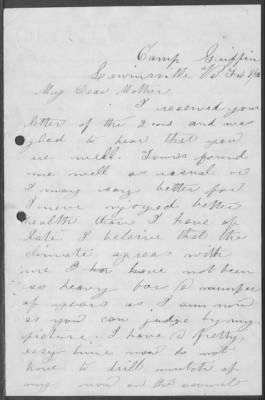 Camp Griffin
Lewinsville Va Feb
My Dear Mother
I received your
letter of the 2nd and was
glad to hear that you
are well. Yours found
me well as usual or
I may say better for
I never enjoyed better
health than I have of
late I beleive that the
climate agrees with
me I have not been
so heavy for a number
of years as I am now
as you can judge by my
picture. I have a pretty
easy time now do not
have to drill much of
any now on the account